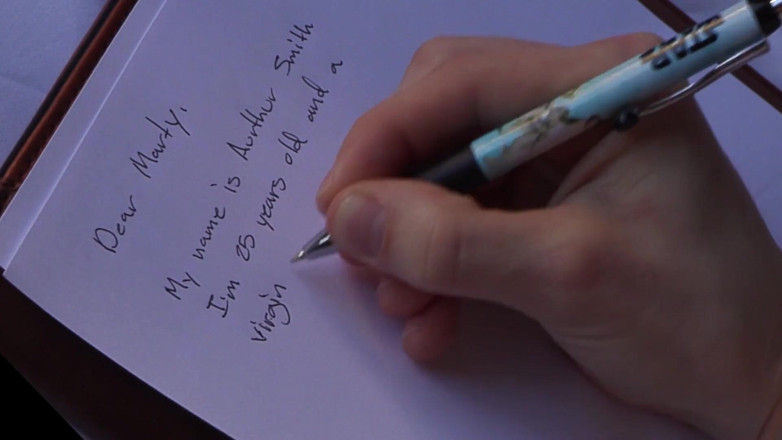 Dear Mardy,
My name is Aurthur Smith
I'm 25 years old and a
virgin